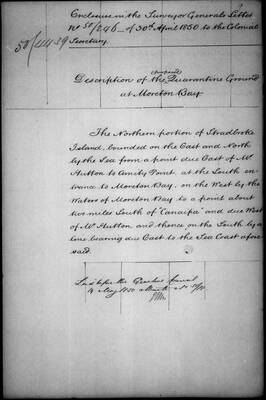 Enclosure in the Surveyor General's Letter
No 50/246 of 30th April 1850 to the Colonial
Secretary
50/4439
(proposed)
Description of the Quarantine Ground
at Moreton Bay
The Northern portion of Stradbroke
Island, bounded on the East and North
by the Sea from a point due East of Mt
Hutton to Amity Point, at the South en-
trance to Moreton Bay, on the West by the
Waters of Moreton Bay to a point about
two miles South of "Canaipa" and due West
of Mt Hutton, and thence on the South by a
line bearing due East to the Sea Coast afore-
said.
Laid before the Council
14 May 1850